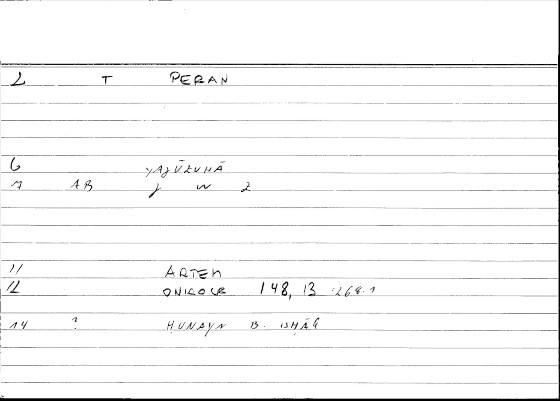 2 T PERAN
6 yAJŪZUHĀ
7 AB J W Z
11 ARTEM
12 ONIROCR 148, 13 268.1
14 ? ḤUNAYN B. ISḤĀQ